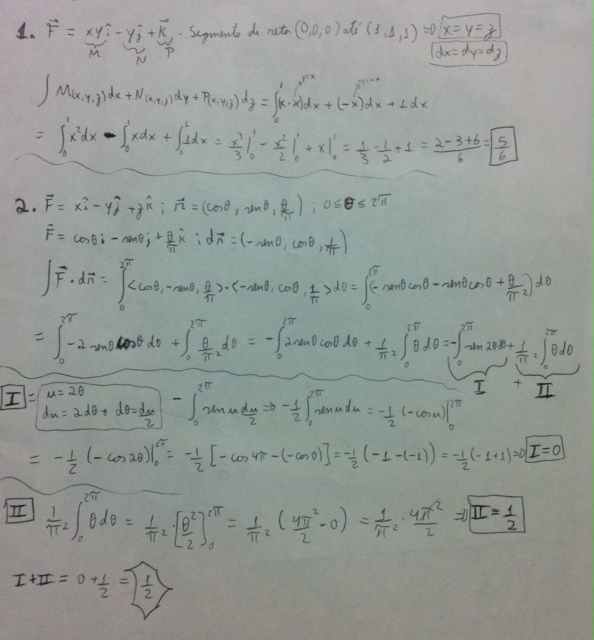 1. F⃗ = xyî - yĵ + k̂. Segmento de reta (0,0,0) até (1,1,1) ⇒ x=y=z
M N P dx=dy=dz
∫ M(x,y,z)dx + N(x,y,z)dy + P(x,y,z)dz = ∫₀¹ (x·x)dx + (-x)dx + 1dx
= ∫₀¹ x²dx - ∫₀¹ xdx + ∫₀¹ 1dx = x³/3|₀¹ - x²/2|₀¹ + x|₀¹ = 1/3 - 1/2 + 1 = (2-3+6)/6 = 5/6
2. F⃗ = xî - yĵ + zk̂ ; r⃗ = (cosθ, senθ, θ/π) ; 0≤θ≤2π
F⃗ = cosθi - senθj + θ/π k̂ ; dr⃗ = (-senθ, cosθ, 1/π)
∫ F⃗·dr⃗ = ∫₀^2π <cosθ, -senθ, θ/π>·<-senθ, cosθ, 1/π> dθ = ∫₀^2π (-senθcosθ - senθcosθ + θ/π²) dθ
= ∫₀^2π -2senθcosθ dθ + ∫₀^2π θ/π² dθ = -∫₀^2π 2senθcosθ dθ + 1/π² ∫₀^2π θ dθ = -∫₀^2π sen2θdθ + 1/π² ∫₀^2π θdθ
I + II
I = u=2θ
du=2dθ → dθ=du/2 - ∫₀^2π senu du/2 ⇒ -1/2 ∫₀^2π senu du = -1/2 (-cosu)|₀^2π
= -1/2 (-cos2θ)|₀^2π = -1/2 [-cos4π - (-cos0)] = -1/2 (-1-(-1)) = -1/2 (-1+1) ⇒ I=0
II 1/π² ∫₀^2π θdθ = 1/π² · [θ²/2]₀^2π = 1/π² (4π²/2 - 0) = 1/π² · 4π²/2 ⇒ II = 1/2
I+II = 0 + 1/2 = 1/2